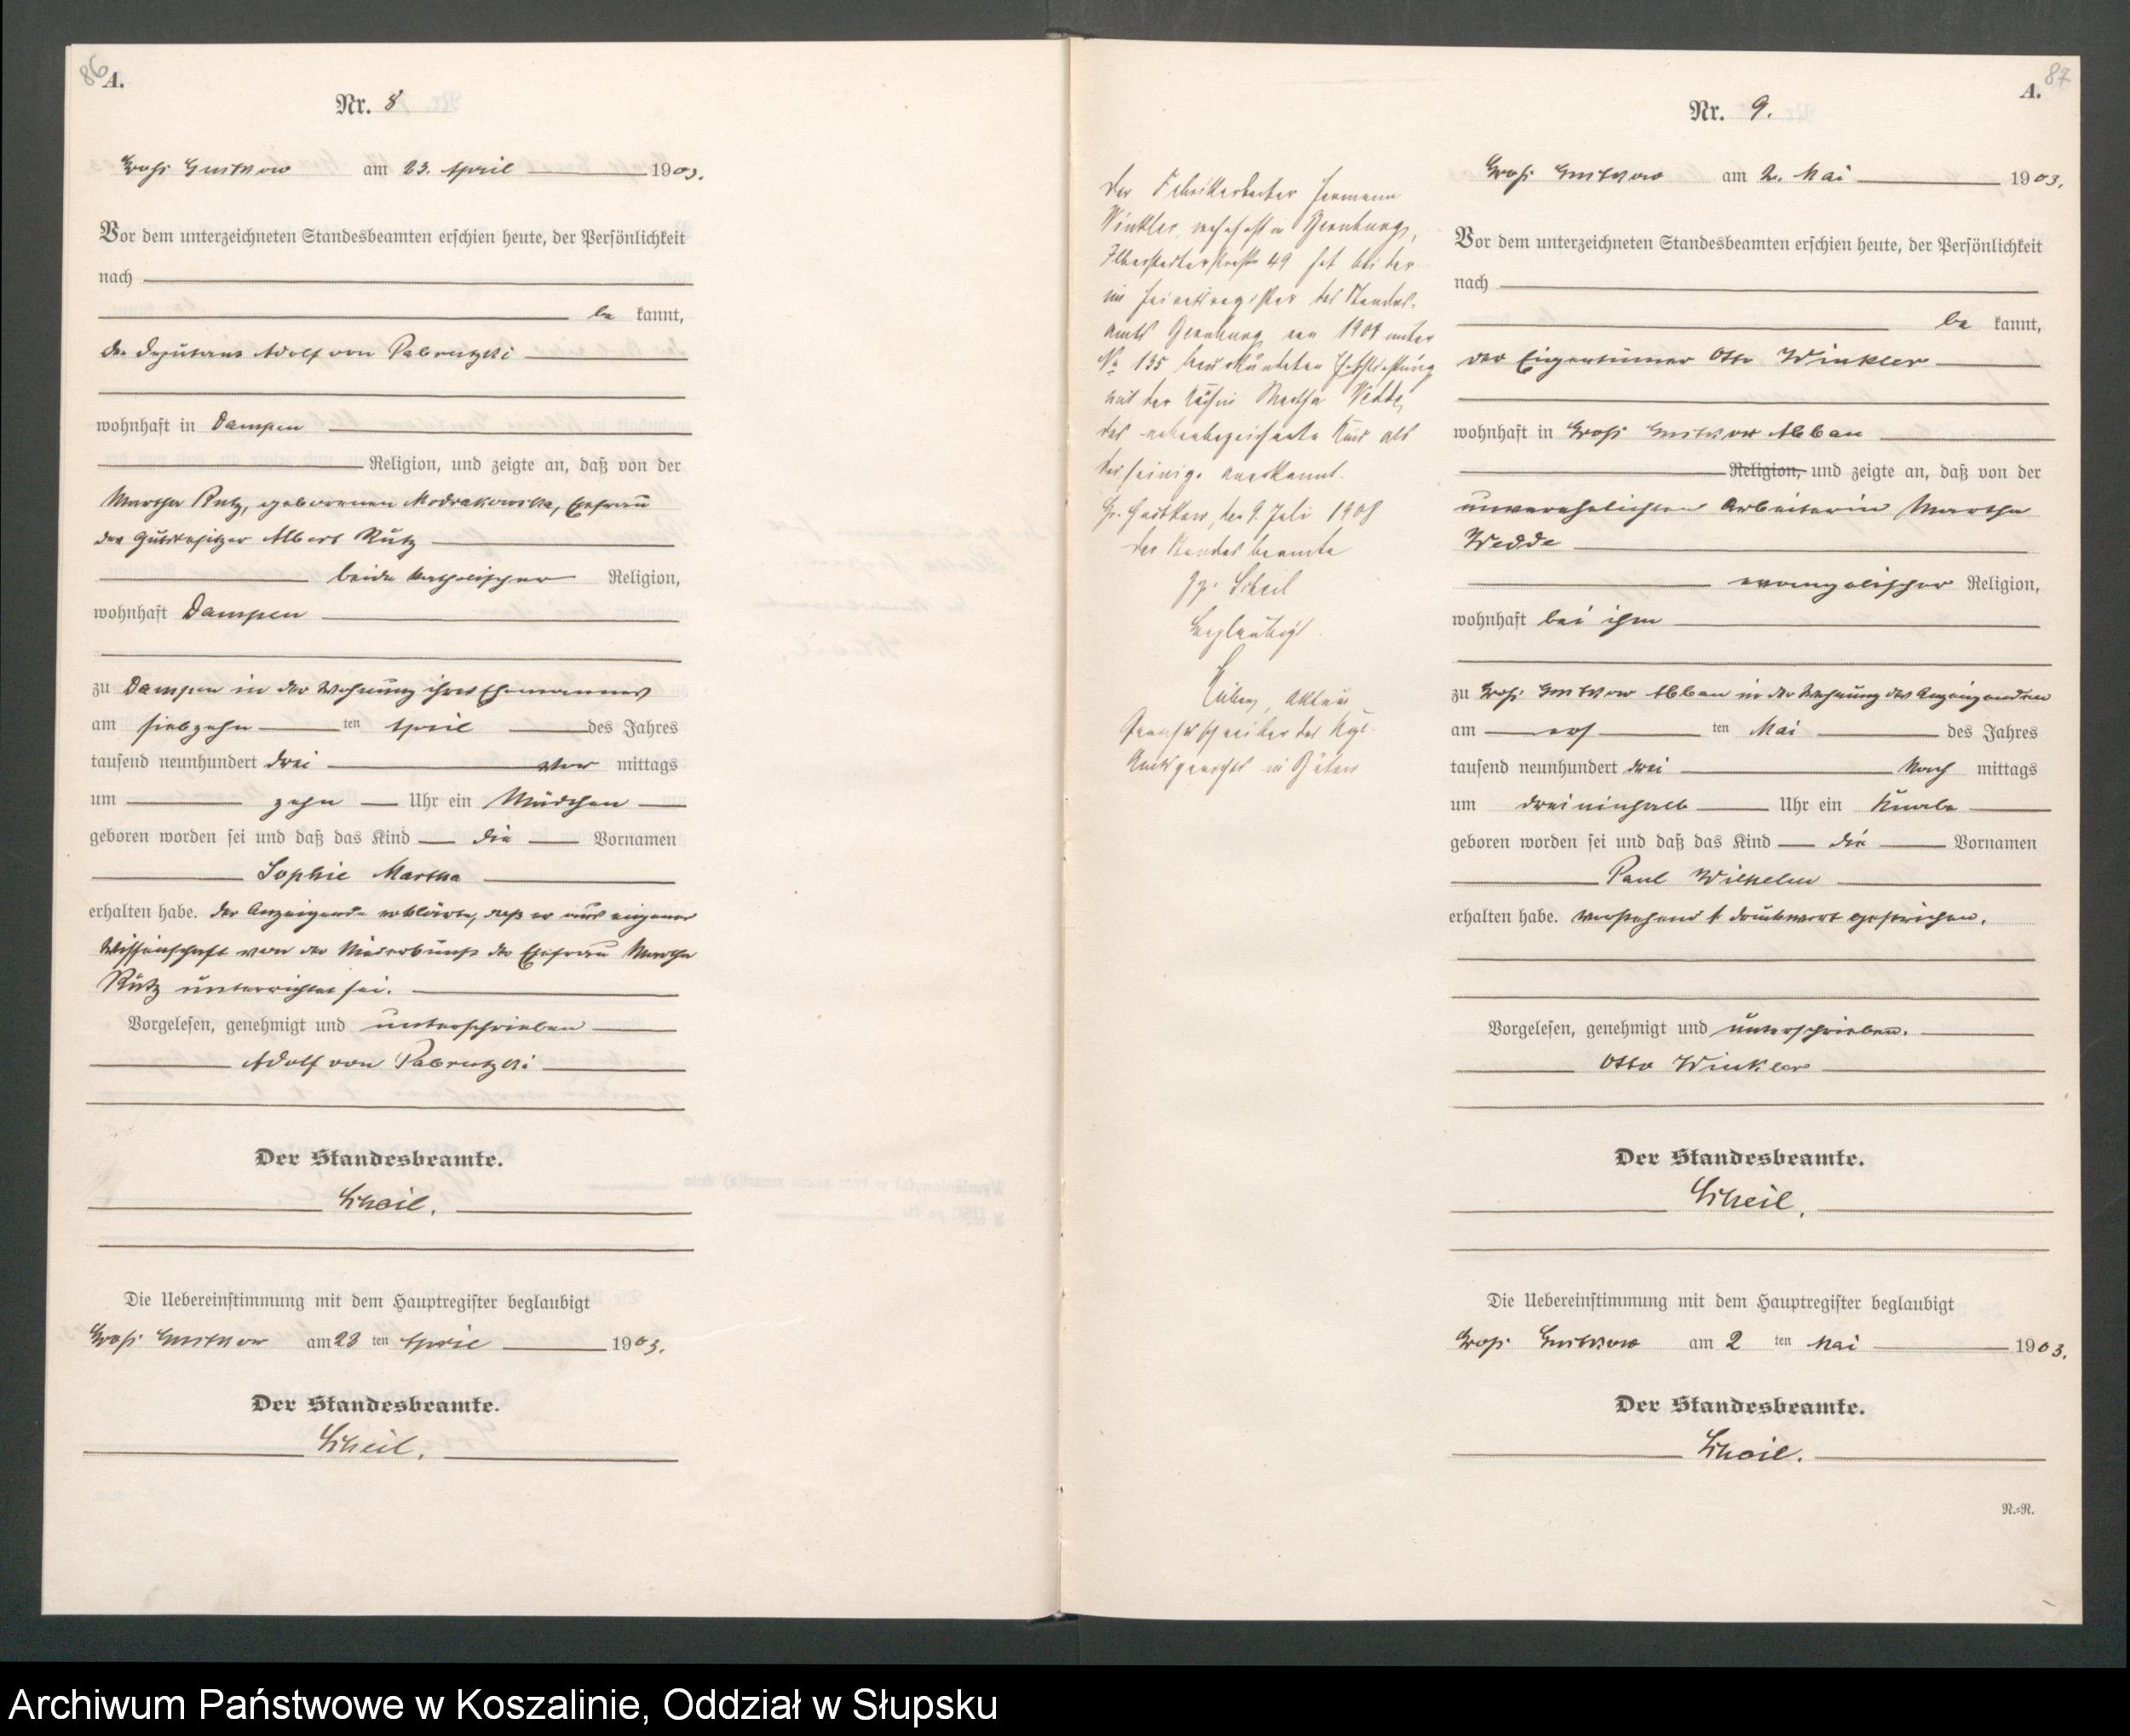 86
A.
Nr. 8
Groß Gustkow am 23. April 1903.
Vor dem unterzeichneten Standesbeamten erschien heute, der Persönlichkeit
nach
be kannt,
der Deputant Adolf von
wohnhaft in Dampen
Religion, und zeigte an, daß von der
Martha Rutz, geborenen Modrakowska, Ehefrau
des Gutsbesitzer Albert Rutz
beide katholischer Religion,
wohnhaft Dampen
zu Dampen in der Wohnung ihres Ehemannes
am siebzehn ten April des Jahres
tausend neunhundert drei vor mittags
um zehn Uhr ein Mädchen
geboren worden sei und daß das Kind die Vornamen
Sophie Martha
erhalten habe. Der Anzeigende erklärte, daß er aus eigener
Wissenschaft von der Niederkunft der Ehefrau Martha
Rutz unterrichtet sei.
Vorgelesen, genehmigt und unterschrieben
Adolf von
Der Standesbeamte.
Scheil.
Die Uebereinstimmung mit dem Hauptregister beglaubigt
Groß Gustkow am 23 ten April 1903.
Der Standesbeamte.
Scheil.
87
A.
Nr. 9.
Der Fabrikarbeiter Hermann
Winkler, wohnhaft in Bernburg,
Ilberstedterstraße 49 hat bei der
im Heiratsregister des Standes-
amts Bernburg von 1904 unter
No 135 beurkundeten Eheschließung
mit der Martha Wedde,
das nebenbezeichnete Kind als
das seinige anerkannt.
Gr. Gustkow, den 9. Juli 1908
Der Standesbeamte
gz. Scheil
Beglaubigt
Gerichtsschreiber des Kgl.
Amtsgerichts in Bütow
Groß Gustkow am 2. Mai 1903.
Vor dem unterzeichneten Standesbeamten erschien heute, der Persönlichkeit
nach
be kannt,
der Eigentümer Otto Winkler
wohnhaft in Groß Gustkow Abbau
Religion, und zeigte an, daß von der
unverehelichten Arbeiterin Martha
Wedde
evangelischer Religion,
wohnhaft bei ihm
zu Groß Gustkow Abbau in der Wohnung des Anzeigenden
am ers ten Mai des Jahres
tausend neunhundert drei Nach mittags
um dreieinhalb Uhr ein Knabe
geboren worden sei und daß das Kind die Vornamen
Paul Wilhelm
erhalten habe. Vorstehend 1 Druckwort gestrichen.
Vorgelesen, genehmigt und unterschrieben.
Otto Winkler
Der Standesbeamte.
Scheil.
Die Uebereinstimmung mit dem Hauptregister beglaubigt
Groß Gustkow am 2 ten Mai 1903.
Der Standesbeamte.
Scheil.
N.=N.
Archiwum Państwowe w Koszalinie, Oddział w Słupsku